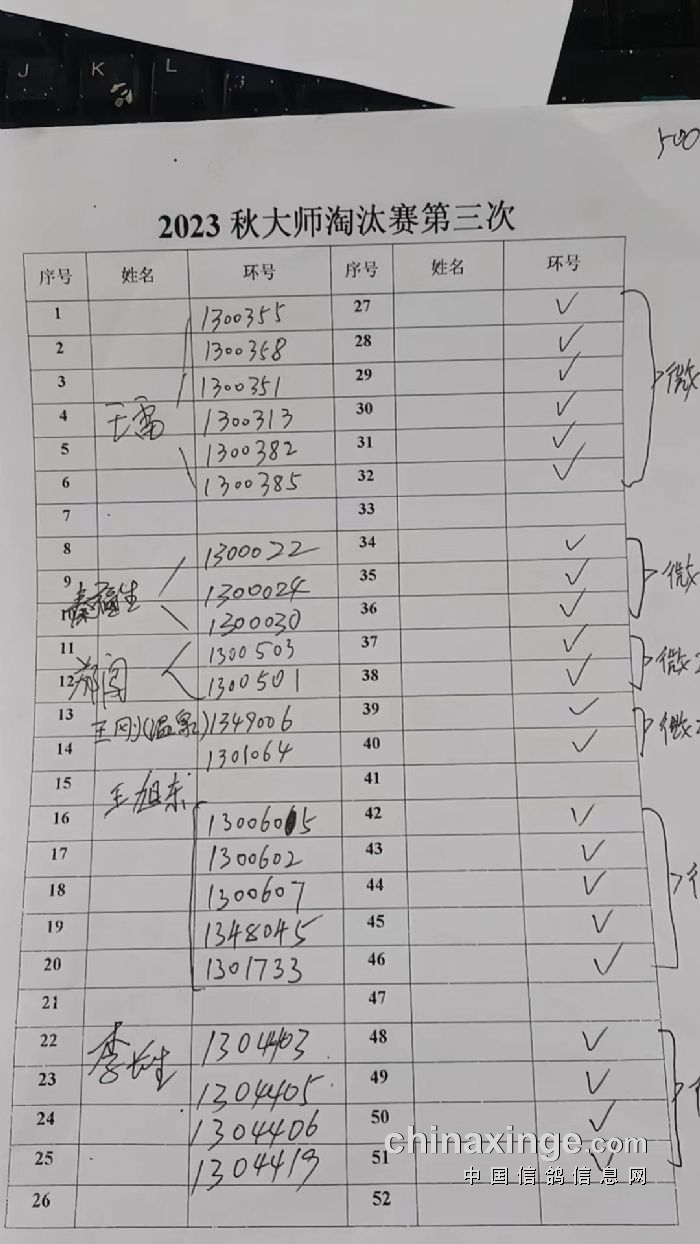 J K L
500
2023 秋大师淘汰赛第三次
序号 姓名 环号 序号 姓名 环号
1 1300355 27 ✓
2 1300358 28 ✓
3 1300351 29 ✓ 微
4 王雷 1300313 30 ✓
5 1300382 31 ✓
6 1300385 32 ✓
7 33
8 1300022 34 ✓
9 秦福生 1300024 35 ✓ 微
10 1300030 36 ✓
11 1300503 37 ✓
12 郑闯 1300501 38 ✓ 微
13 王刚(温泉) 1349006 39 ✓
14 1301064 40 ✓ 微
15 王旭东 41
16 1300605 42 ✓
17 1300602 43 ✓
18 1300607 44 ✓
19 1348045 45 ✓
20 1301733 46 ✓
21 47
22 李长生 1304403 48 ✓
23 1304405 49 ✓
24 1304406 50 ✓
25 1304419 51 ✓
26 52
chinaxinge.com
中国信鸽信息网